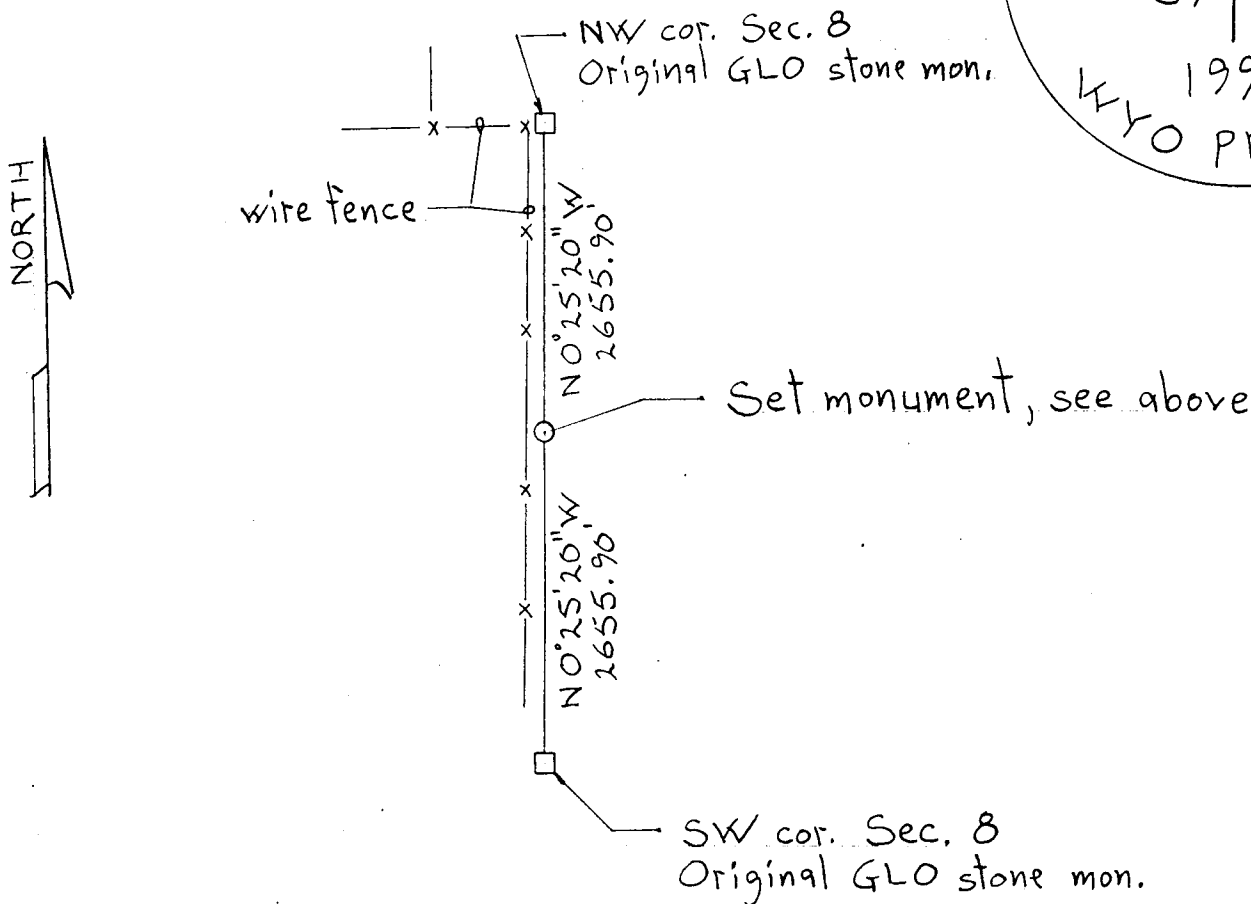 NW cor. Sec. 8
Original GLO stone mon.
199
WYO
NORTH
wire fence
N 0°25'20" W
2655.90'
Set monument, see above
N 0°25'20" W
2655.90'
SW cor. Sec. 8
Original GLO stone mon.